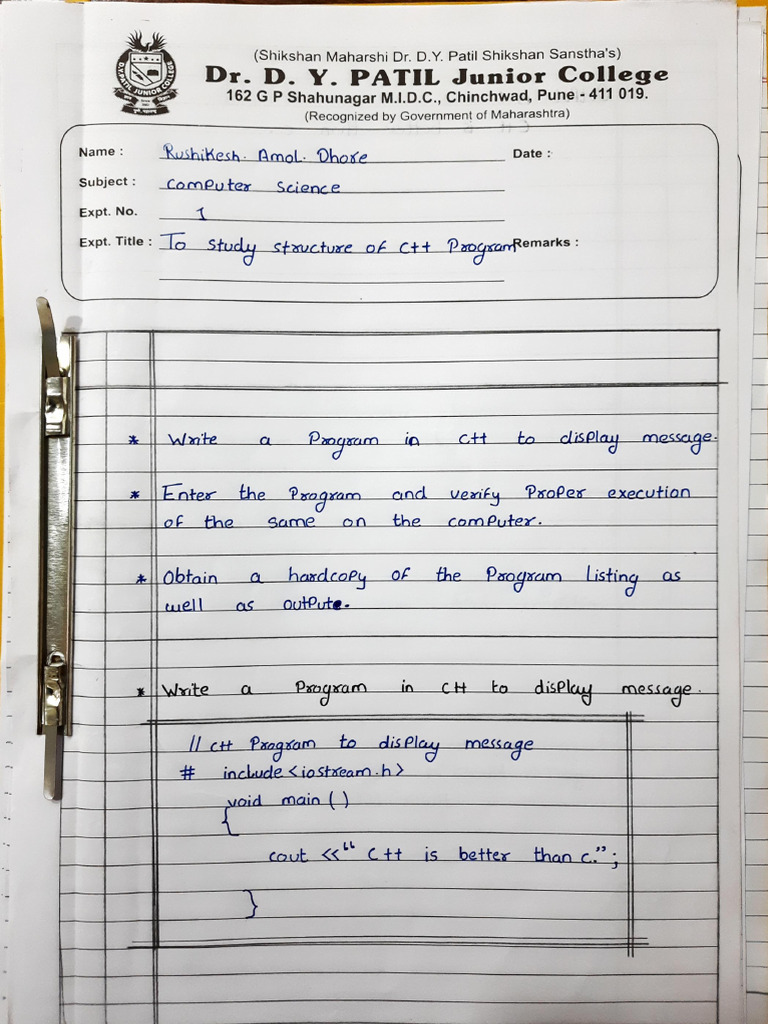 (Shikshan Maharshi Dr. D.Y. Patil Shikshan Sanstha's)
Dr. D. Y. PATIL Junior College
162 G P Shahunagar M.I.D.C., Chinchwad, Pune - 411 019.
(Recognized by Government of Maharashtra)
Name : Rushikesh. Amol. Dhore Date :
Subject : Computer Science
Expt. No. 1
Expt. Title : To study structure of C++ Program Remarks :
* Write a Program in C++ to display message.
* Enter the Program and verify Proper execution
of the same on the computer.
* Obtain a hardcopy of the Program listing as
well as output.
* Write a Program in C++ to display message.
// C++ Program to display message
# include <iostream.h>
void main ()
{
cout << “ C++ is better than c.” ;
}